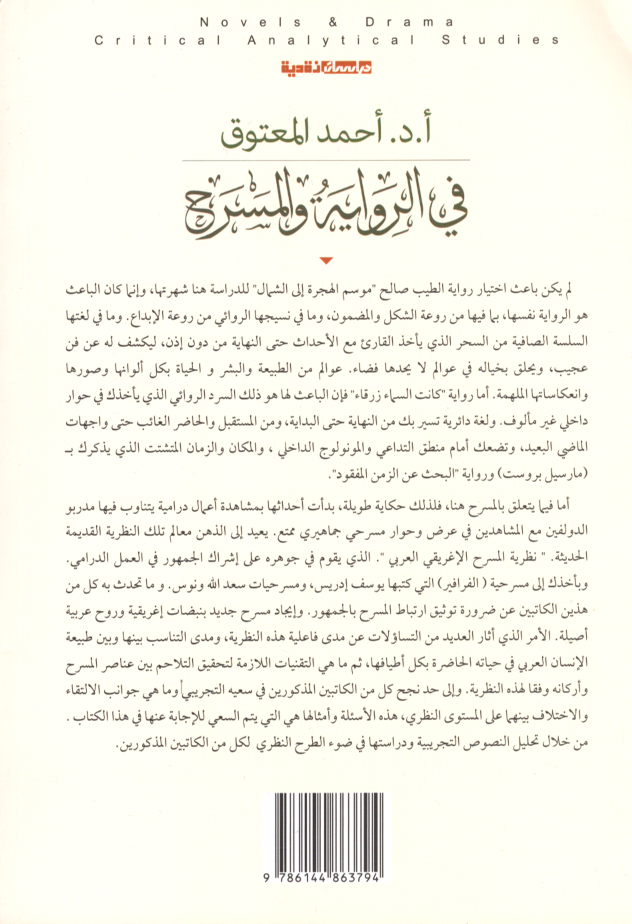 Novels & Drama
Critical Analytical Studies
دراسات نقدية
أ.د. أحمد المعتوق
في الرِوَايَةُ والمَسْرَح
لم يكن باعث اختيار رواية الطيب صالح "موسم الهجرة إلى الشمال" للدراسة هنا شهرتها، وإنما كان الباعث
هو الرواية نفسها، بما فيها من روعة الشكل والمضمون، وما في نسيجها الروائي من روعة الإبداع. وما في لغتها
السلسة الصافية من السحر الذي يأخذ القارئ مع الأحداث حتى النهاية من دون إذن، ليكشف له عن فن
عجيب، ويحلق بخياله في عوالم لا يحدها فضاء. عوالم من الطبيعة والبشر و الحياة بكل ألوانها وصورها
وانعكاساتها الملهمة. أما رواية "كانت السماء زرقاء" فإن الباعث لها هو ذلك السرد الروائي الذي يأخذك في حوار
داخلي غير مألوف. ولغة دائرية تسير بك من النهاية حتى البداية، ومن المستقبل والحاضر الغائب حتى واجهات
الماضي البعيد، وتضعك أمام منطق التداعي والمونولوج الداخلي ، والمكان والزمان المتشتت الذي يذكرك بـ
(مارسيل بروست) ورواية "البحث عن الزمن المفقود".
أما فيما يتعلق بالمسرح هنا، فلذلك حكاية طويلة، بدأت أحداثها بمشاهدة أعمال درامية يتناوب فيها مدربو
الدولفين مع المشاهدين في عرض وحوار مسرحي جماهيري ممتع. يعيد إلى الذهن معالم تلك النظرية القديمة
الحديثة. " نظرية المسرح الإغريقي العربي ". الذي يقوم في جوهره على إشراك الجمهور في العمل الدرامي.
ويأخذك إلى مسرحية ( الفرافير) التي كتبها يوسف إدريس، ومسرحيات سعد الله ونوس. و ما تحدث به كل من
هذين الكاتبين عن ضرورة توثيق ارتباط المسرح بالجمهور. وإيجاد مسرح جديد بنبضات إغريقية وروح عربية
أصيلة. الأمر الذي أثار العديد من التساؤلات عن مدى فاعلية هذه النظرية، ومدى التناسب بينها وبين طبيعة
الإنسان العربي في حياته الحاضرة بكل أطيافها، ثم ما هي التقنيات اللازمة لتحقيق التلاحم بين عناصر المسرح
وأركانه وفقا لهذه النظرية. وإلى حد نجح كل من الكاتبين المذكورين في سعيه التجريبي وما هي جوانب الالتقاء
والاختلاف بينهما على المستوى النظري، هذه الأسئلة وأمثالها هي التي يتم السعي للإجابة عنها في هذا الكتاب .
من خلال تحليل النصوص التجريبية ودراستها في ضوء الطرح النظري لكل من الكاتبين المذكورين.
9 786144 863794